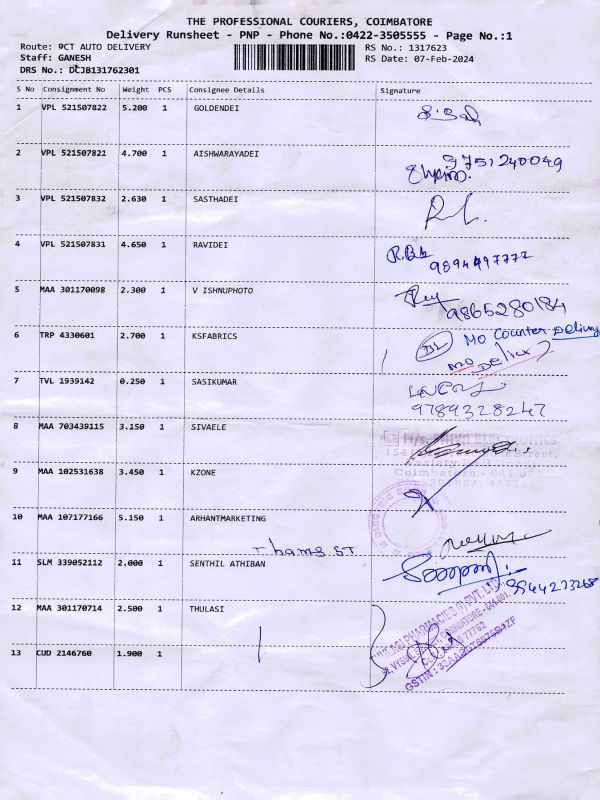 THE PROFESSIONAL COURIERS, COIMBATORE
Delivery Runsheet - PNP - Phone No.:0422-3505555 - Page No.:1
Route: PCT AUTO DELIVERY RS No.: 1317623
Staff: GANESH RS Date: 07-Feb-2024
DRS No.: DCJB131762301
S No Consignment No Weight PCS Consignee Details Signature
1 VPL 521507822 5.200 1 GOLDENDEI
2 VPL 521507821 4.700 1 AISHWARAYADEI 9751240049
3 VPL 521507832 2.630 1 SASTHADEI
4 VPL 521507831 4.650 1 RAVIDEI
5 MAA 301170098 2.300 1 V ISHNUPHOTO 9865280184
6 TRP 4330601 2.700 1 KSFABRICS MO Counter Delivery
MO Delivery
7 TVL 1939142 0.250 1 SASIKUMAR
9789328247
8 MAA 703439115 3.150 1 SIVAELE
M/s. ELECTRONICS
Street,
Coimbatore
9 MAA 102531638 3.450 1 KZONE
10 MAA 107177166 5.150 1 ARHANTMARKETING
Thams ST
11 SLM 339052112 2.000 1 SENTHIL ATHIBAN 9944273268
12 MAA 301170714 2.500 1 THULASI
PHARMACIES (I) PVT. LTD.
COIMBATORE
GSTIN :
13 CUD 2146760 1.900 1